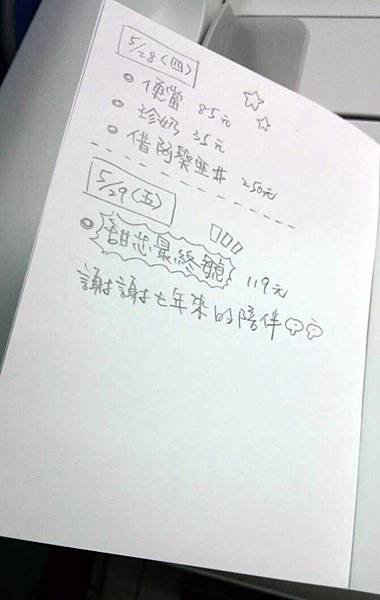 5/28(四)
便當 85元
珍奶 35元
借 250元
5/29(五)
甜芯最終號 119元
謝謝七年來的陪伴